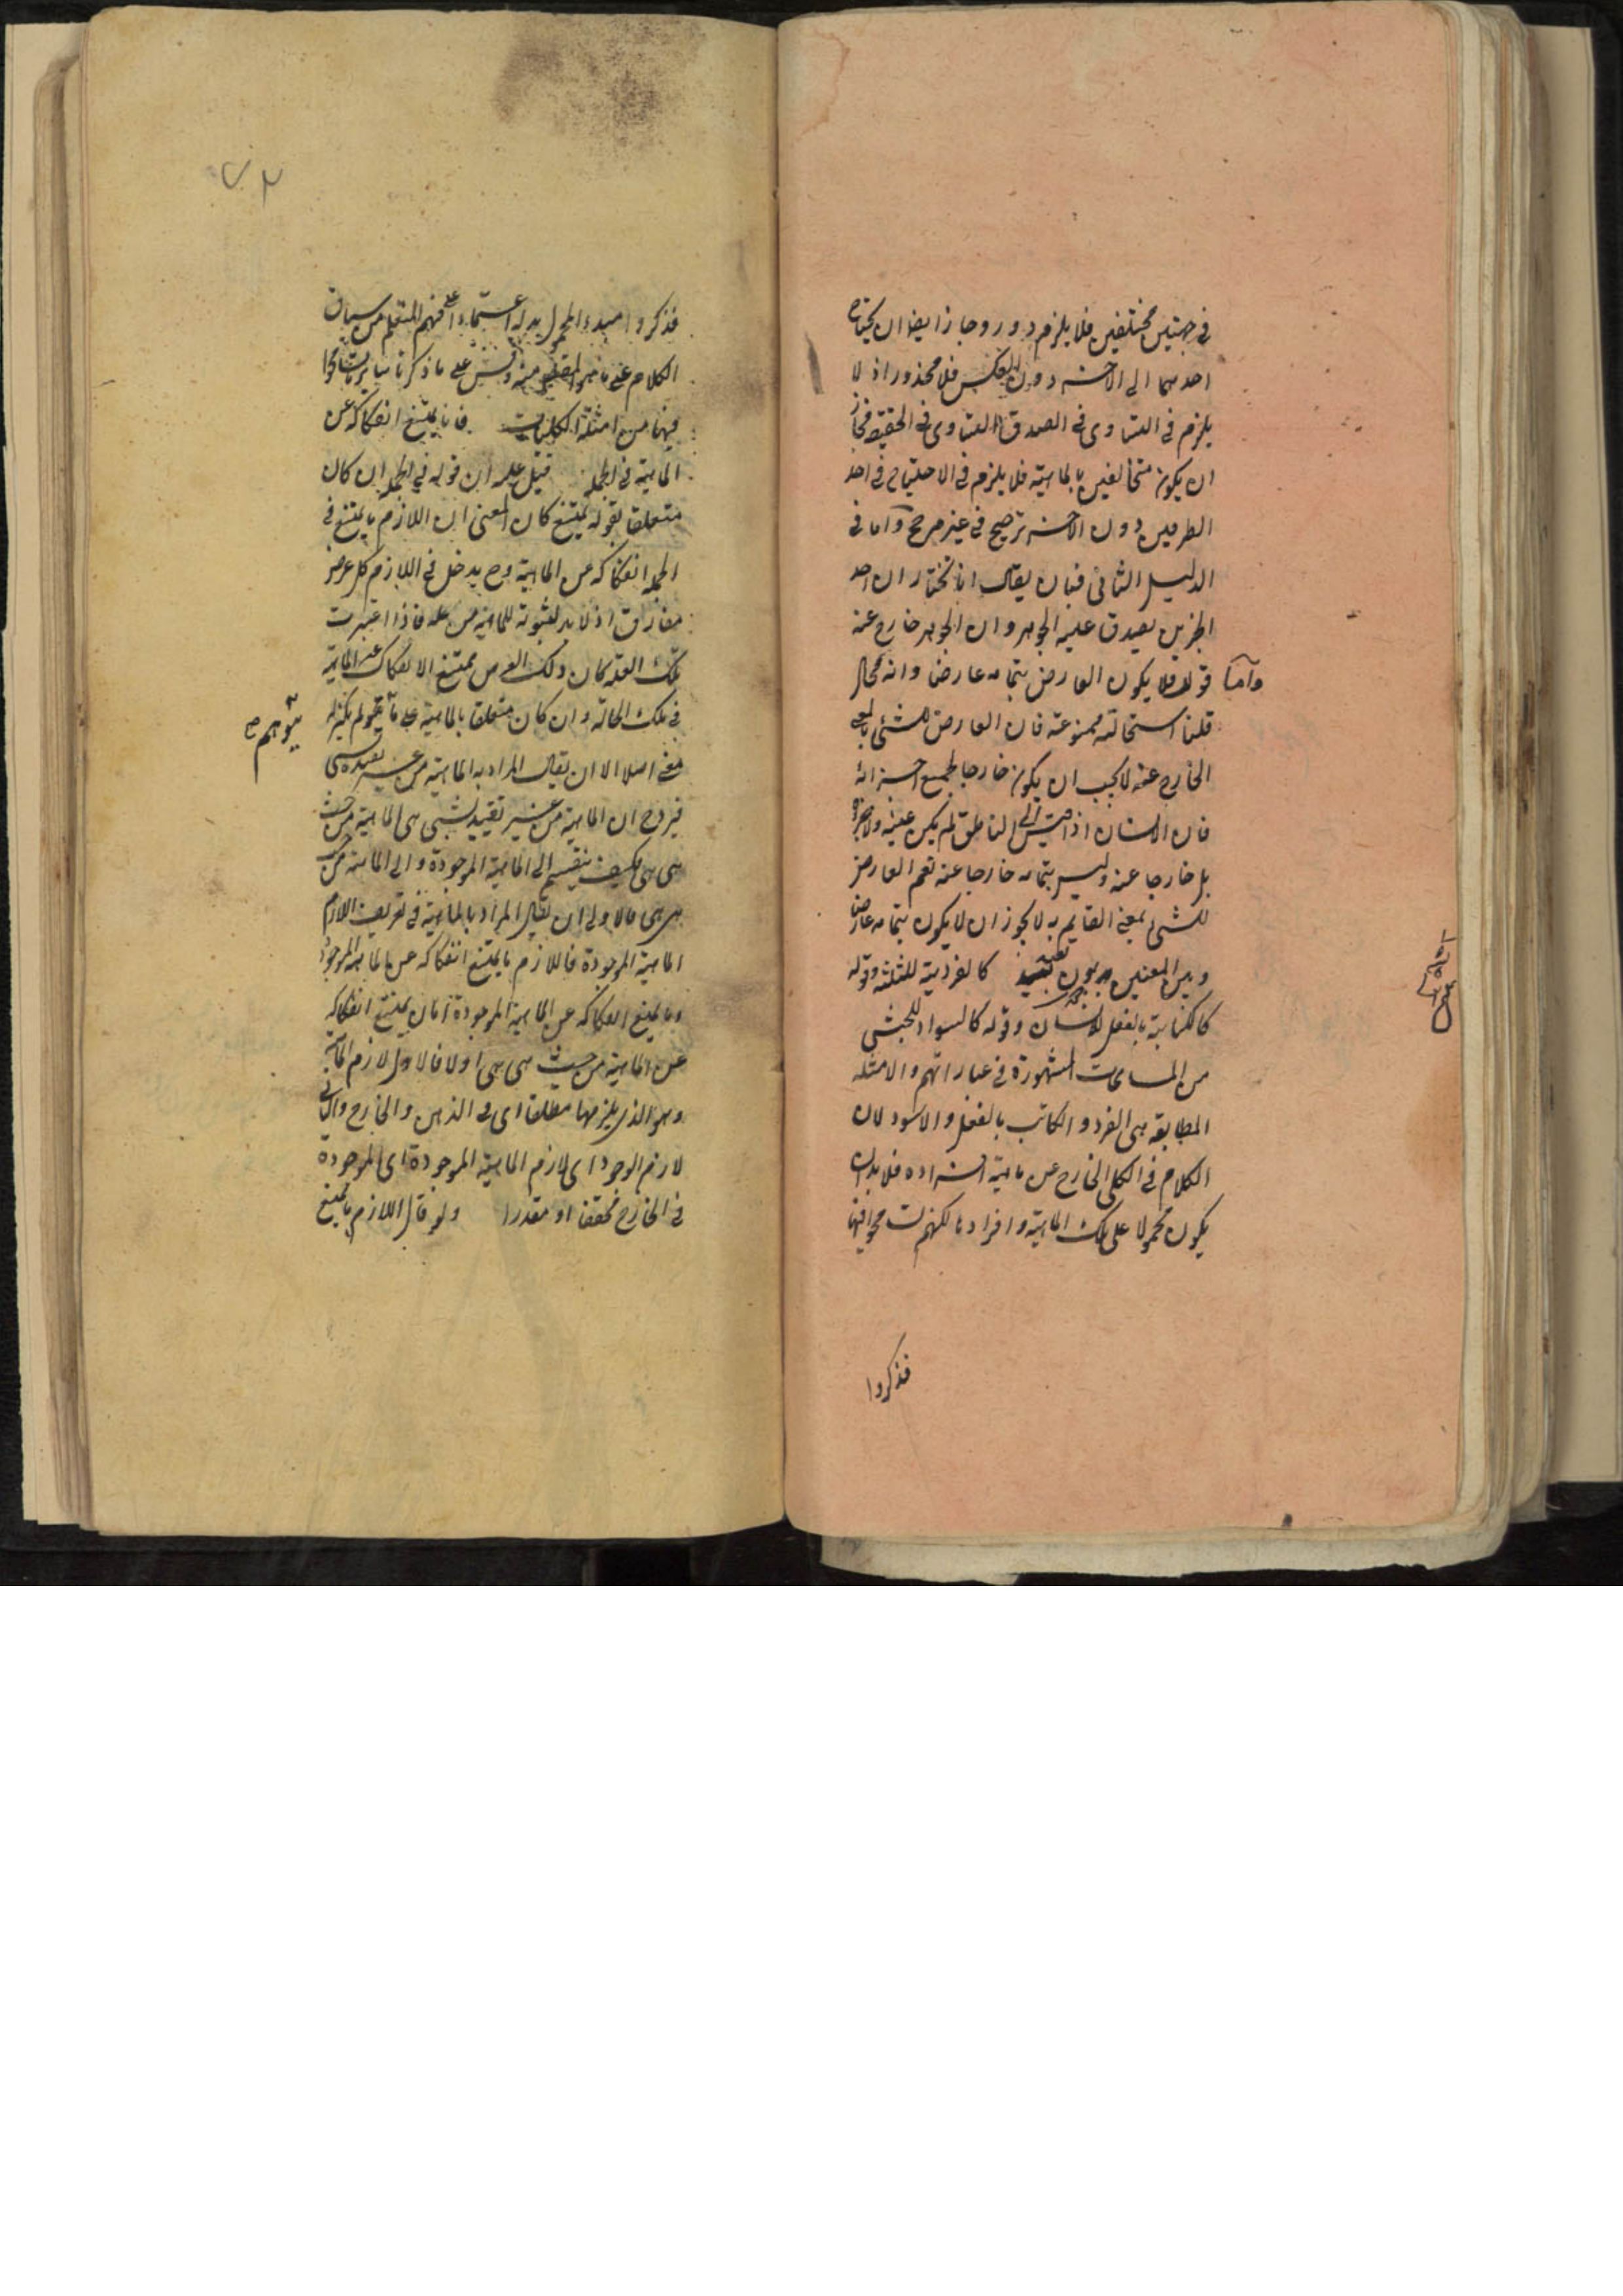 في جهتين مختلفين فلا يلزم دور وجاز ايضا ان يحتاج
احدهما الى الاخر دون العكس فلا محذور اذ لا
يلزم في التساوى في الصدق التساوى في الحقيقة فجاز
ان يكون متخالفين بالماهية فلا يلزم في الاحتياج في احد
الطرفين دون الاخر ترجيح في غير مرجح واما في
الدليل الثانى فبان يقال انا نختار ان احد
الجزئين يصدق عليه الجوهر وان الجوهر خارج عنه
واما قوله فلا يكون العارض بتمامه عارضا وانه محال
قلنا استحالته ممنوعة فان العارض للشئ بالمعنى
الخارج عنه لا يجب ان يكون خارجا لجميع اجزائه
فان الانسان اذا قيس الى الناطق لم يكن عينه ولا جزؤه
بل خارجا عنه وليس بتمامه خارجا عنه نعم العارض
للشئ بمعنى القايم به لا يجوز ان لا يكون بتمامه عارضا
وبين المعنيين بون بعيد كالفردية للثلثة وقوله
كالكتابة بالفعل للانسان وقوله كالسواد للحبشى
من المسامحات المشهورة في عباراتهم والامثله
المطابقه هى الفرد و الكاتب بالفعل و الاسود لان
الكلام في الكلى الخارج عن ماهية افراده فلا بد ان
يكون محمولا على تلك الماهية و افرادها لكنهم تسامحوا فيها
فذكروا
٧٢
فذكروا مبدء المحمول بدله اعتمادا على فهم المتعلم من سياق
الكلام على ما هو المقصود منه وقس على ما ذكرنا سائر ما تسامحوا
فيها من امثلة الكليات فانا يمتنع انفكاكه عن
الماهية في الجمله قيل عليه ان قوله في الجمله ان كان
متعلقا بقوله يمتنع كان المعنى ان اللازم ما يمتنع في
الجمله انفكاكه عن الماهية وح يدخل في اللازم كل عرض
مفارق اذ لا بد لثبوته للماهية من علة فاذا اعتبرت
تلك العلة كان ذلك العرض ممتنع الانفكاك عن الماهية
في تلك الحالة و ان كان متعلقا بالماهية على ما يتوهم لم يكن له
معنى اصلا الا ان يقال المراد به الماهية من غير تقييد بشى
فيرد ح ان الماهية من غير تقييد بشئ هى الماهية من حيث
هى هى فكيف ينقسم الى الماهية الموجودة و الى الماهية من حيث
هى هى فالاولى ان يقال المراد بالماهية في تعريف اللازم
الماهية الموجودة فاللازم ما يمتنع انفكاكه عن الماهية الموجودة
وما يمتنع انفكاكه عن الماهية الموجودة اما ان يمتنع انفكاكه
عن الماهية من حيث هى هى اولا فالاول لازم الماهية
وهو الذى يلزمها مطلقا اى في الذهن و الخارج والثانى
لازم الوجود اى لازم الماهية الموجودة اى الموجودة
في الخارج محققا او مقدرا ولو قال اللازم ما يمتنع
يتوهم